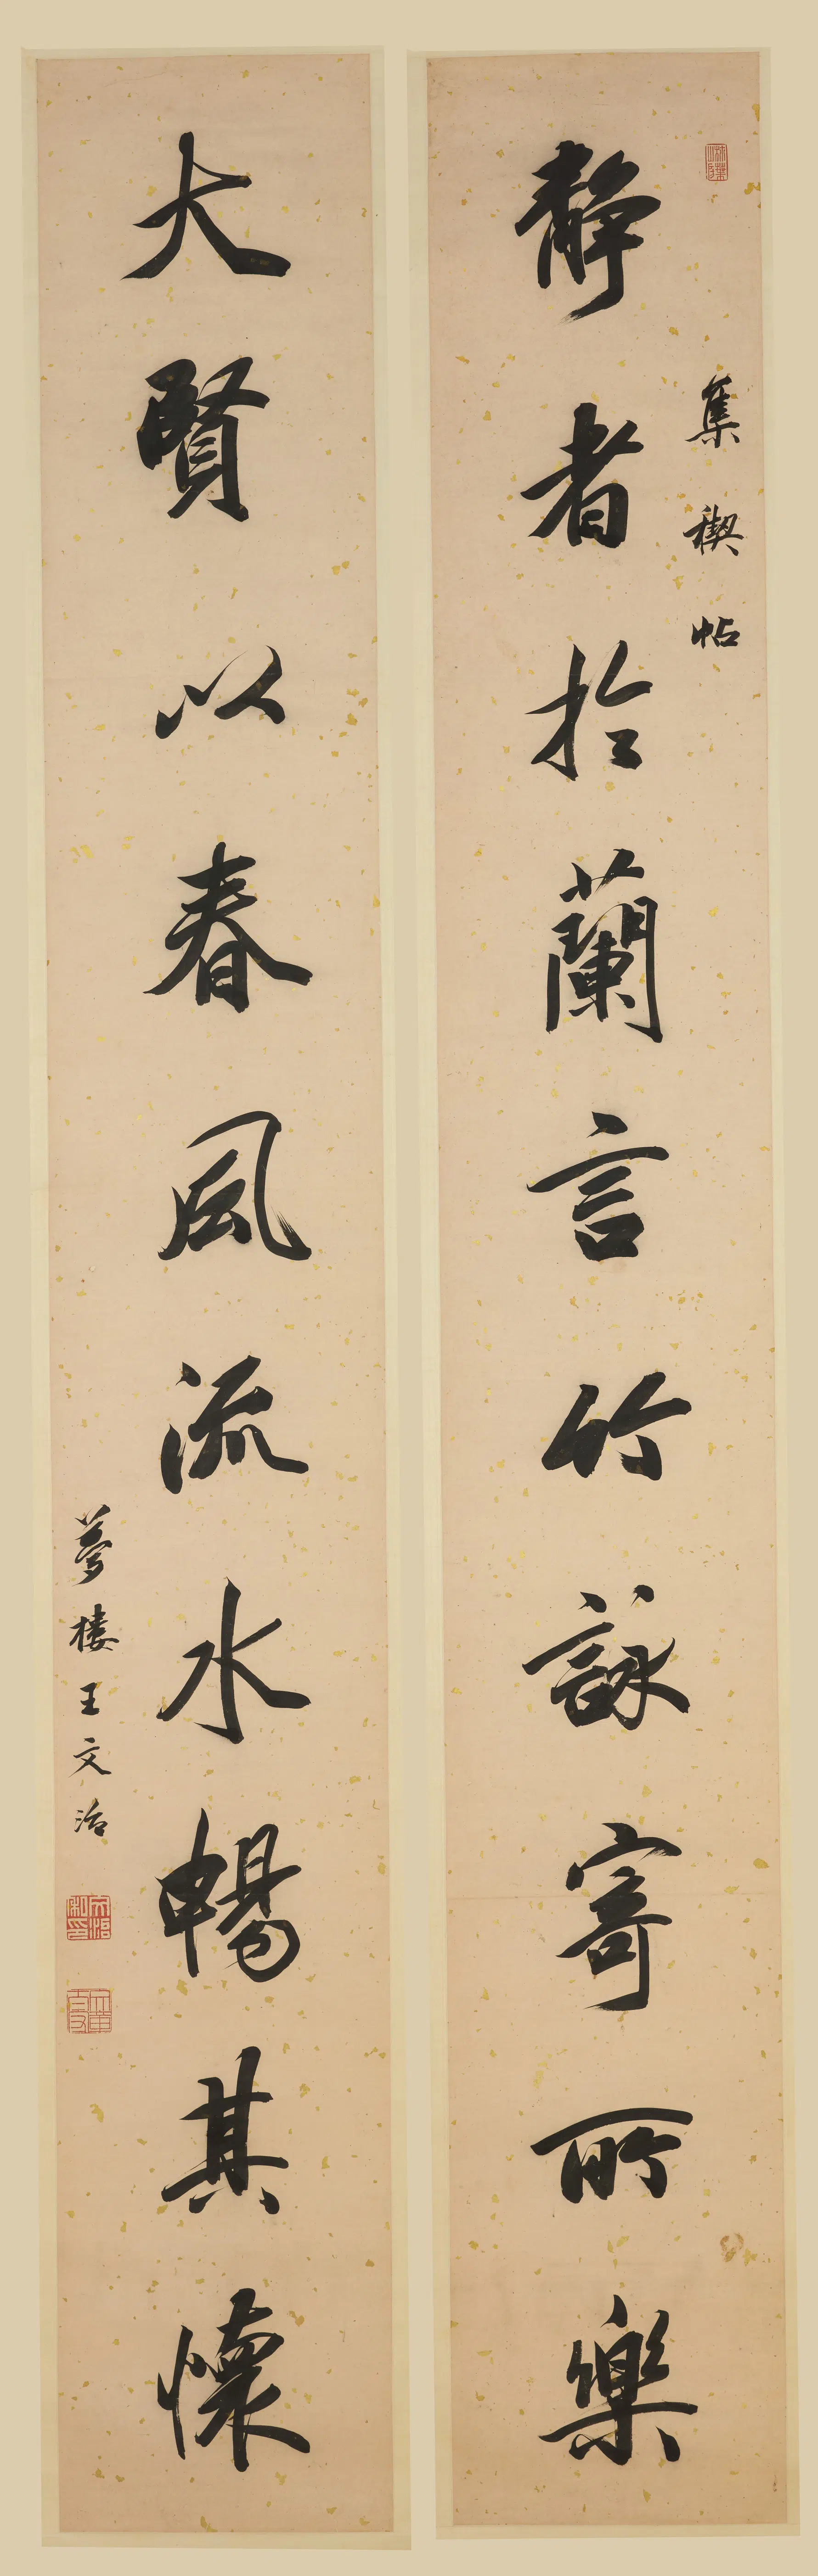 集禊帖
静者於蘭言竹詠寄所樂
大賢以春風流水暢其懷
夢樓王文治